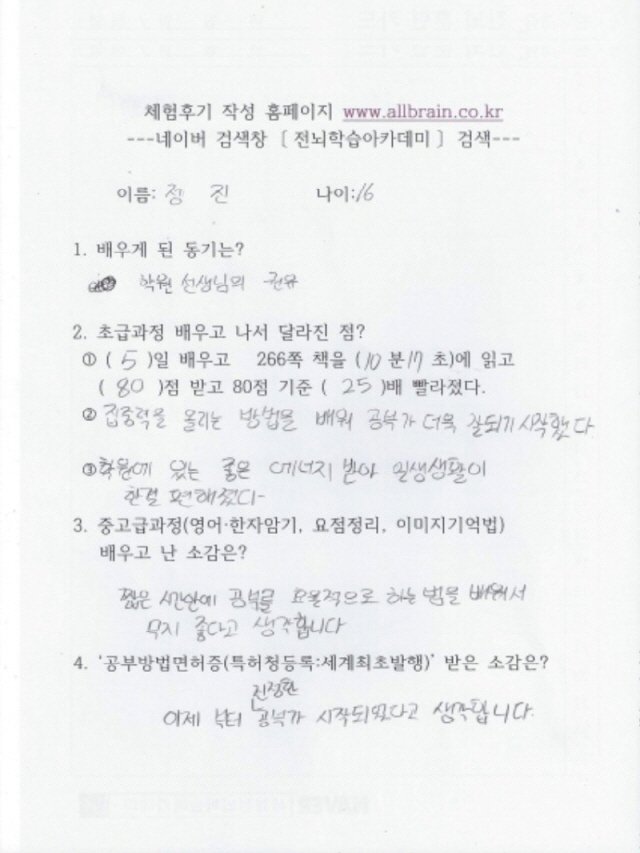 체험후기 작성 홈페이지 www.allbrain.co.kr
---네이버 검색창 [ 전뇌학습아카데미 ] 검색---
이름: 정 진 나이:16
1. 배우게 된 동기는?
학원 선생님의 권유
2. 초급과정 배우고 나서 달라진 점?
① ( 5 )일 배우고 266쪽 책을 (10 분17 초)에 읽고
( 80 )점 받고 80점 기준 ( 25 )배 빨라졌다.
② 집중력을 올리는 방법을 배워 공부가 더욱 잘되기 시작했다
③ 학원에 있는 좋은 에너지 받아 일생생활이
한결 편해졌다-
3. 중고급과정(영어·한자암기, 요점정리, 이미지기억법)
배우고 난 소감은?
짧은 시간안에 공부를 효율적으로 하는 법을 배워서
무지 좋다고 생각합니다
4. '공부방법면허증(특허청등록:세계최초발행)' 받은 소감은?
진정한
이제 부터 공부가 시작되었다고 생각합니다.